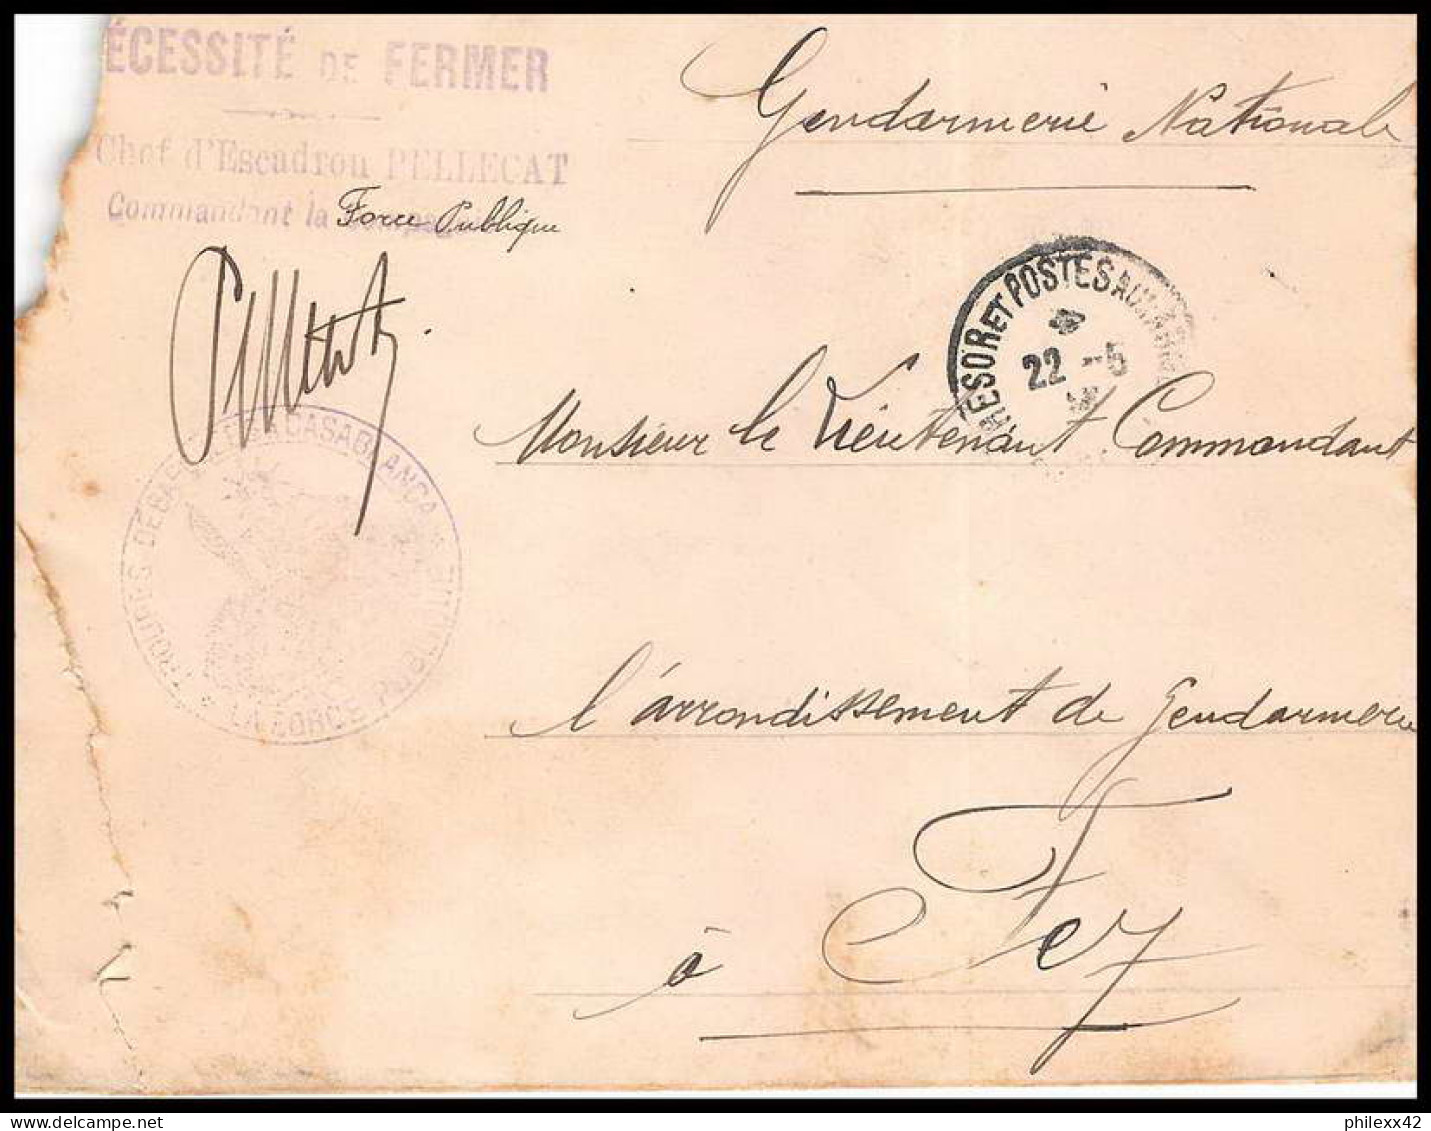 ÉCESSITÉ DE FERMER
Chef d'Escadron PELLECAT
Commandant la Force Publique
Gendarmerie Nationale
TRESOR ET POSTES AUX ARM
22 -5
Monsieur le Lieutenant Commandant
l'arrondissement de Gendarmerie
à Fez
TROUPES DÉBARQUÉES À CASABLANCA
LA FORCE PUBLIQUE
philexx42